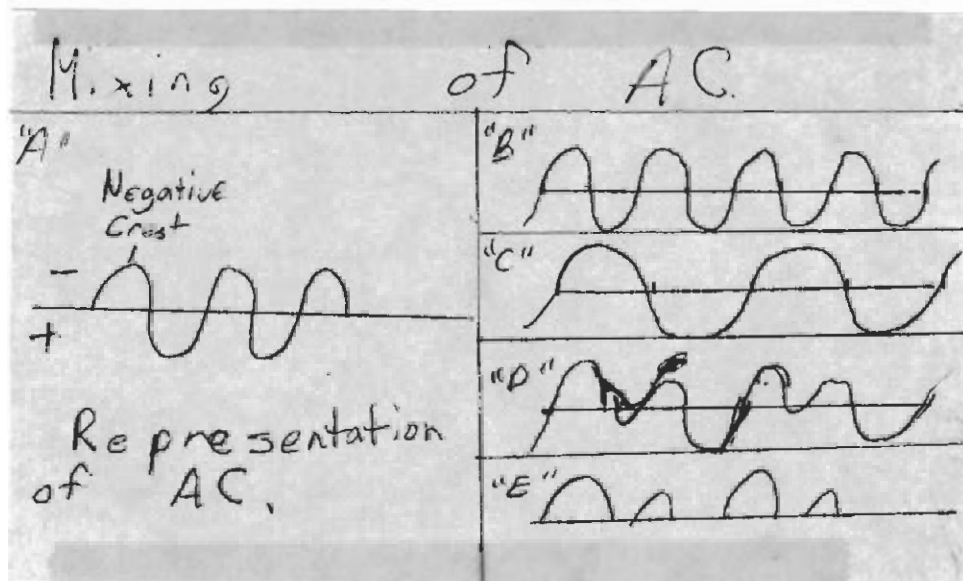 Mixing of AC.
"A"
Negative
Crest
-
+
Representation
of AC.
"B"
"C"
"D"
"E"